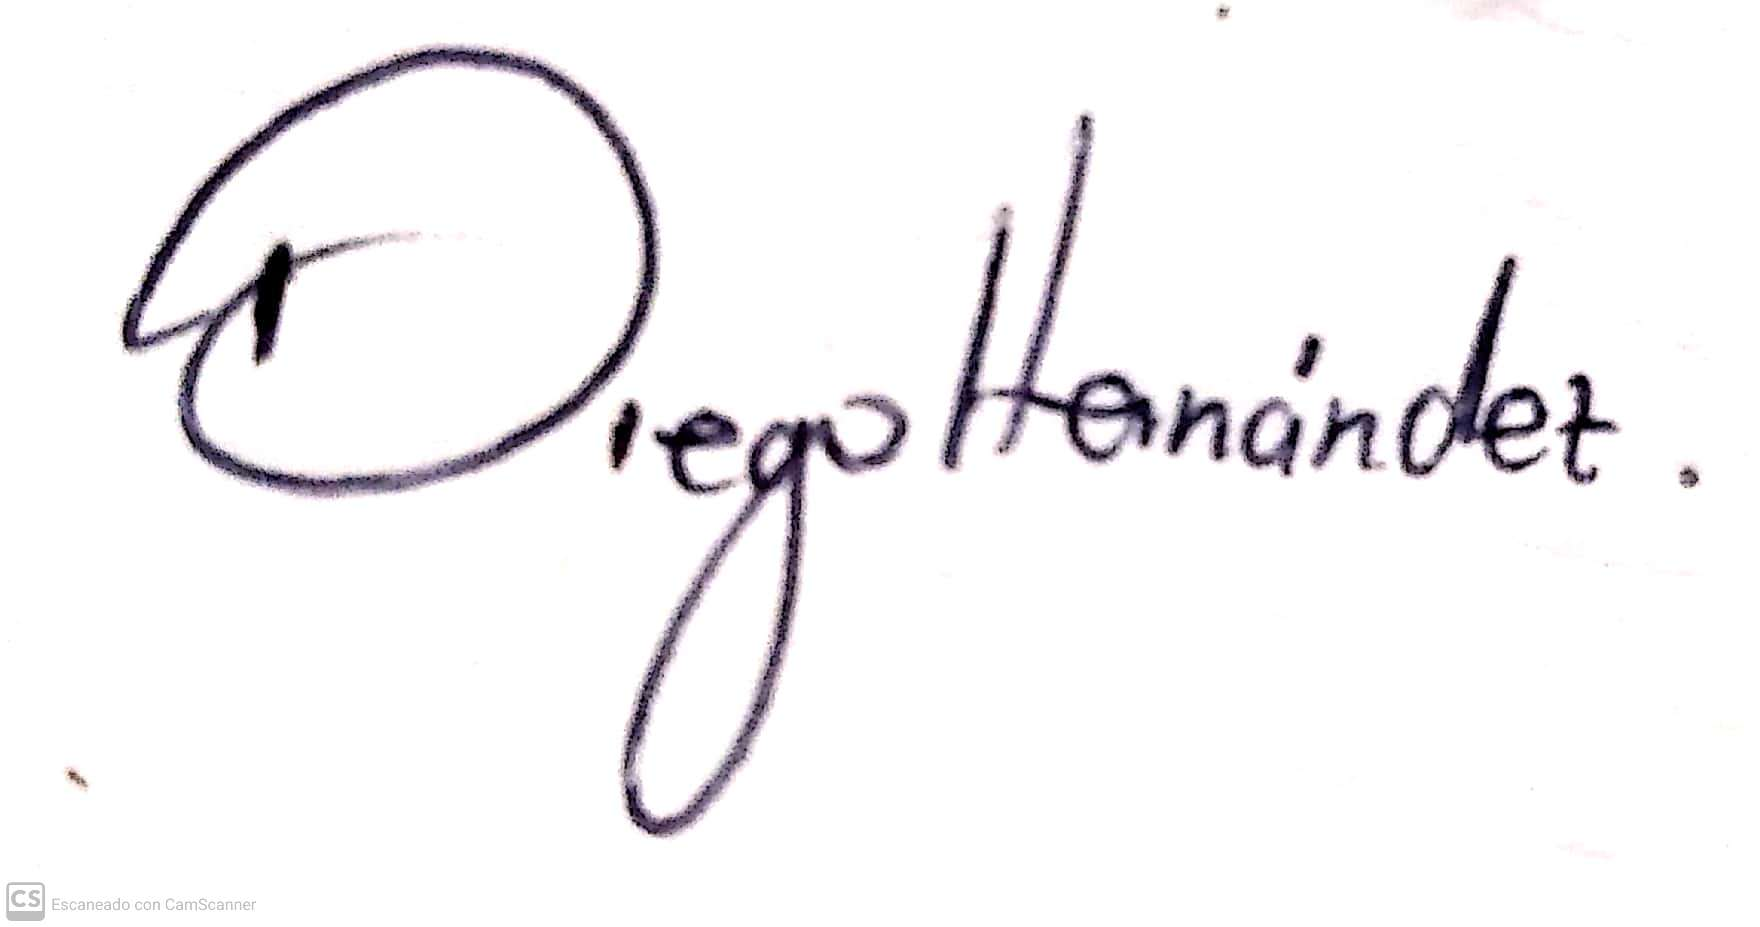 Diego Hernández.
CS Escaneado con CamScanner